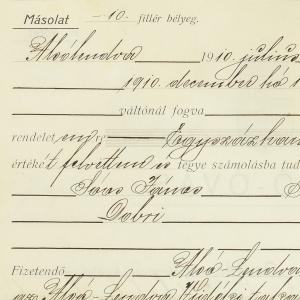 Másolat — 10. fillér bélyeg.
Alsólendva 1910. július
1910. december hó 1
váltónál fogva
rendelet en re Egyszázhar
értékét felvettem is tegye számolásba tud
Sáos János S
Dobri
Fizetendő Alsó-Lendva
az Alsó-Lendva Vidéki takar